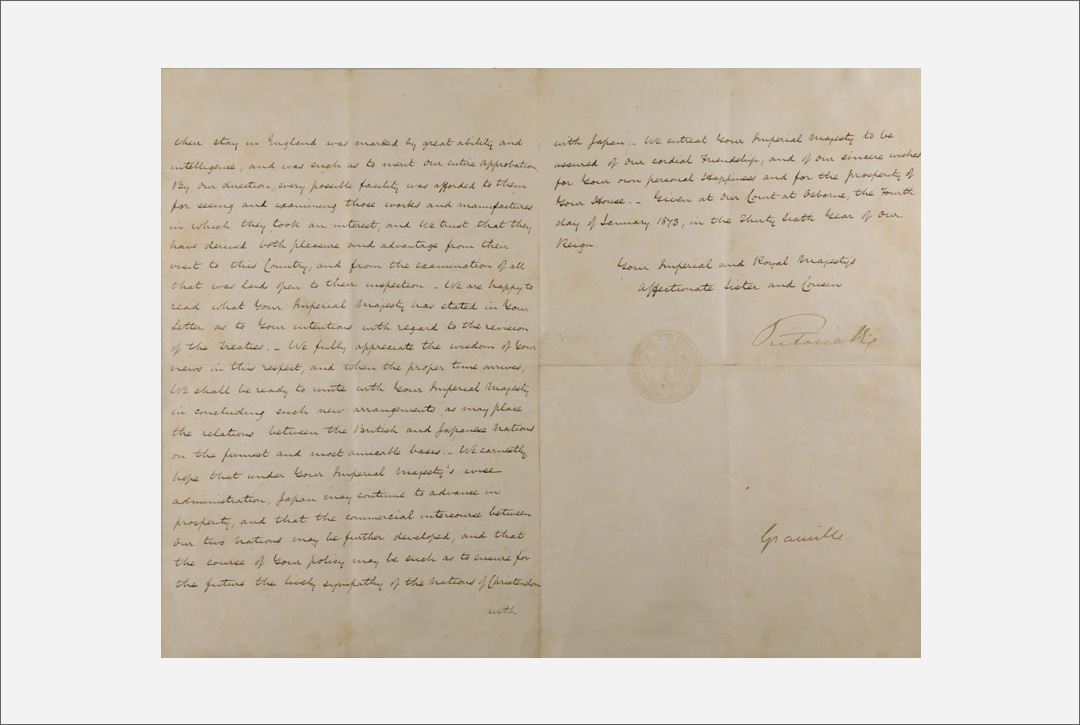 their stay in England was marked by great ability and
intelligence, and was such as to merit Our entire approbation.
By Our direction, every possible facility was afforded to them
for seeing and examining those works and manufactures
in which they took an interest, and We trust that they
have derived both pleasure and advantage from their
visit to this Country, and from the examination of all
that was laid open to their inspection._ We are happy to
read what Your Imperial Majesty has stated in Your
Letter as to Your intentions with regard to the revision
of the Treaties._ We fully appreciate the wisdom of Your
views in this respect, and when the proper time arrives,
We shall be ready to unite with Your Imperial Majesty
in concluding such new arrangements as may place
the relations between the British and Japanese Nations
on the firmest and most amicable basis._ We earnestly
hope that under Your Imperial Majesty's wise
administration, Japan may continue to advance in
prosperity, and that the commercial intercourse between
Our two Nations may be further developed, and that
the course of Your policy may be such as to ensure for
the future the lively sympathy of the Nations of Christendom
with
with Japan._ We entreat Your Imperial Majesty to be
assured of Our cordial Friendship, and of Our sincere wishes
for Your own personal Happiness and for the prosperity of
Your House._ Given at Our Court at Osborne, the Fourth
day of January 1873, in the Thirty Sixth Year of Our
Reign.
Your Imperial and Royal Majesty's
Affectionate Sister and Cousin
Victoria R
Granville